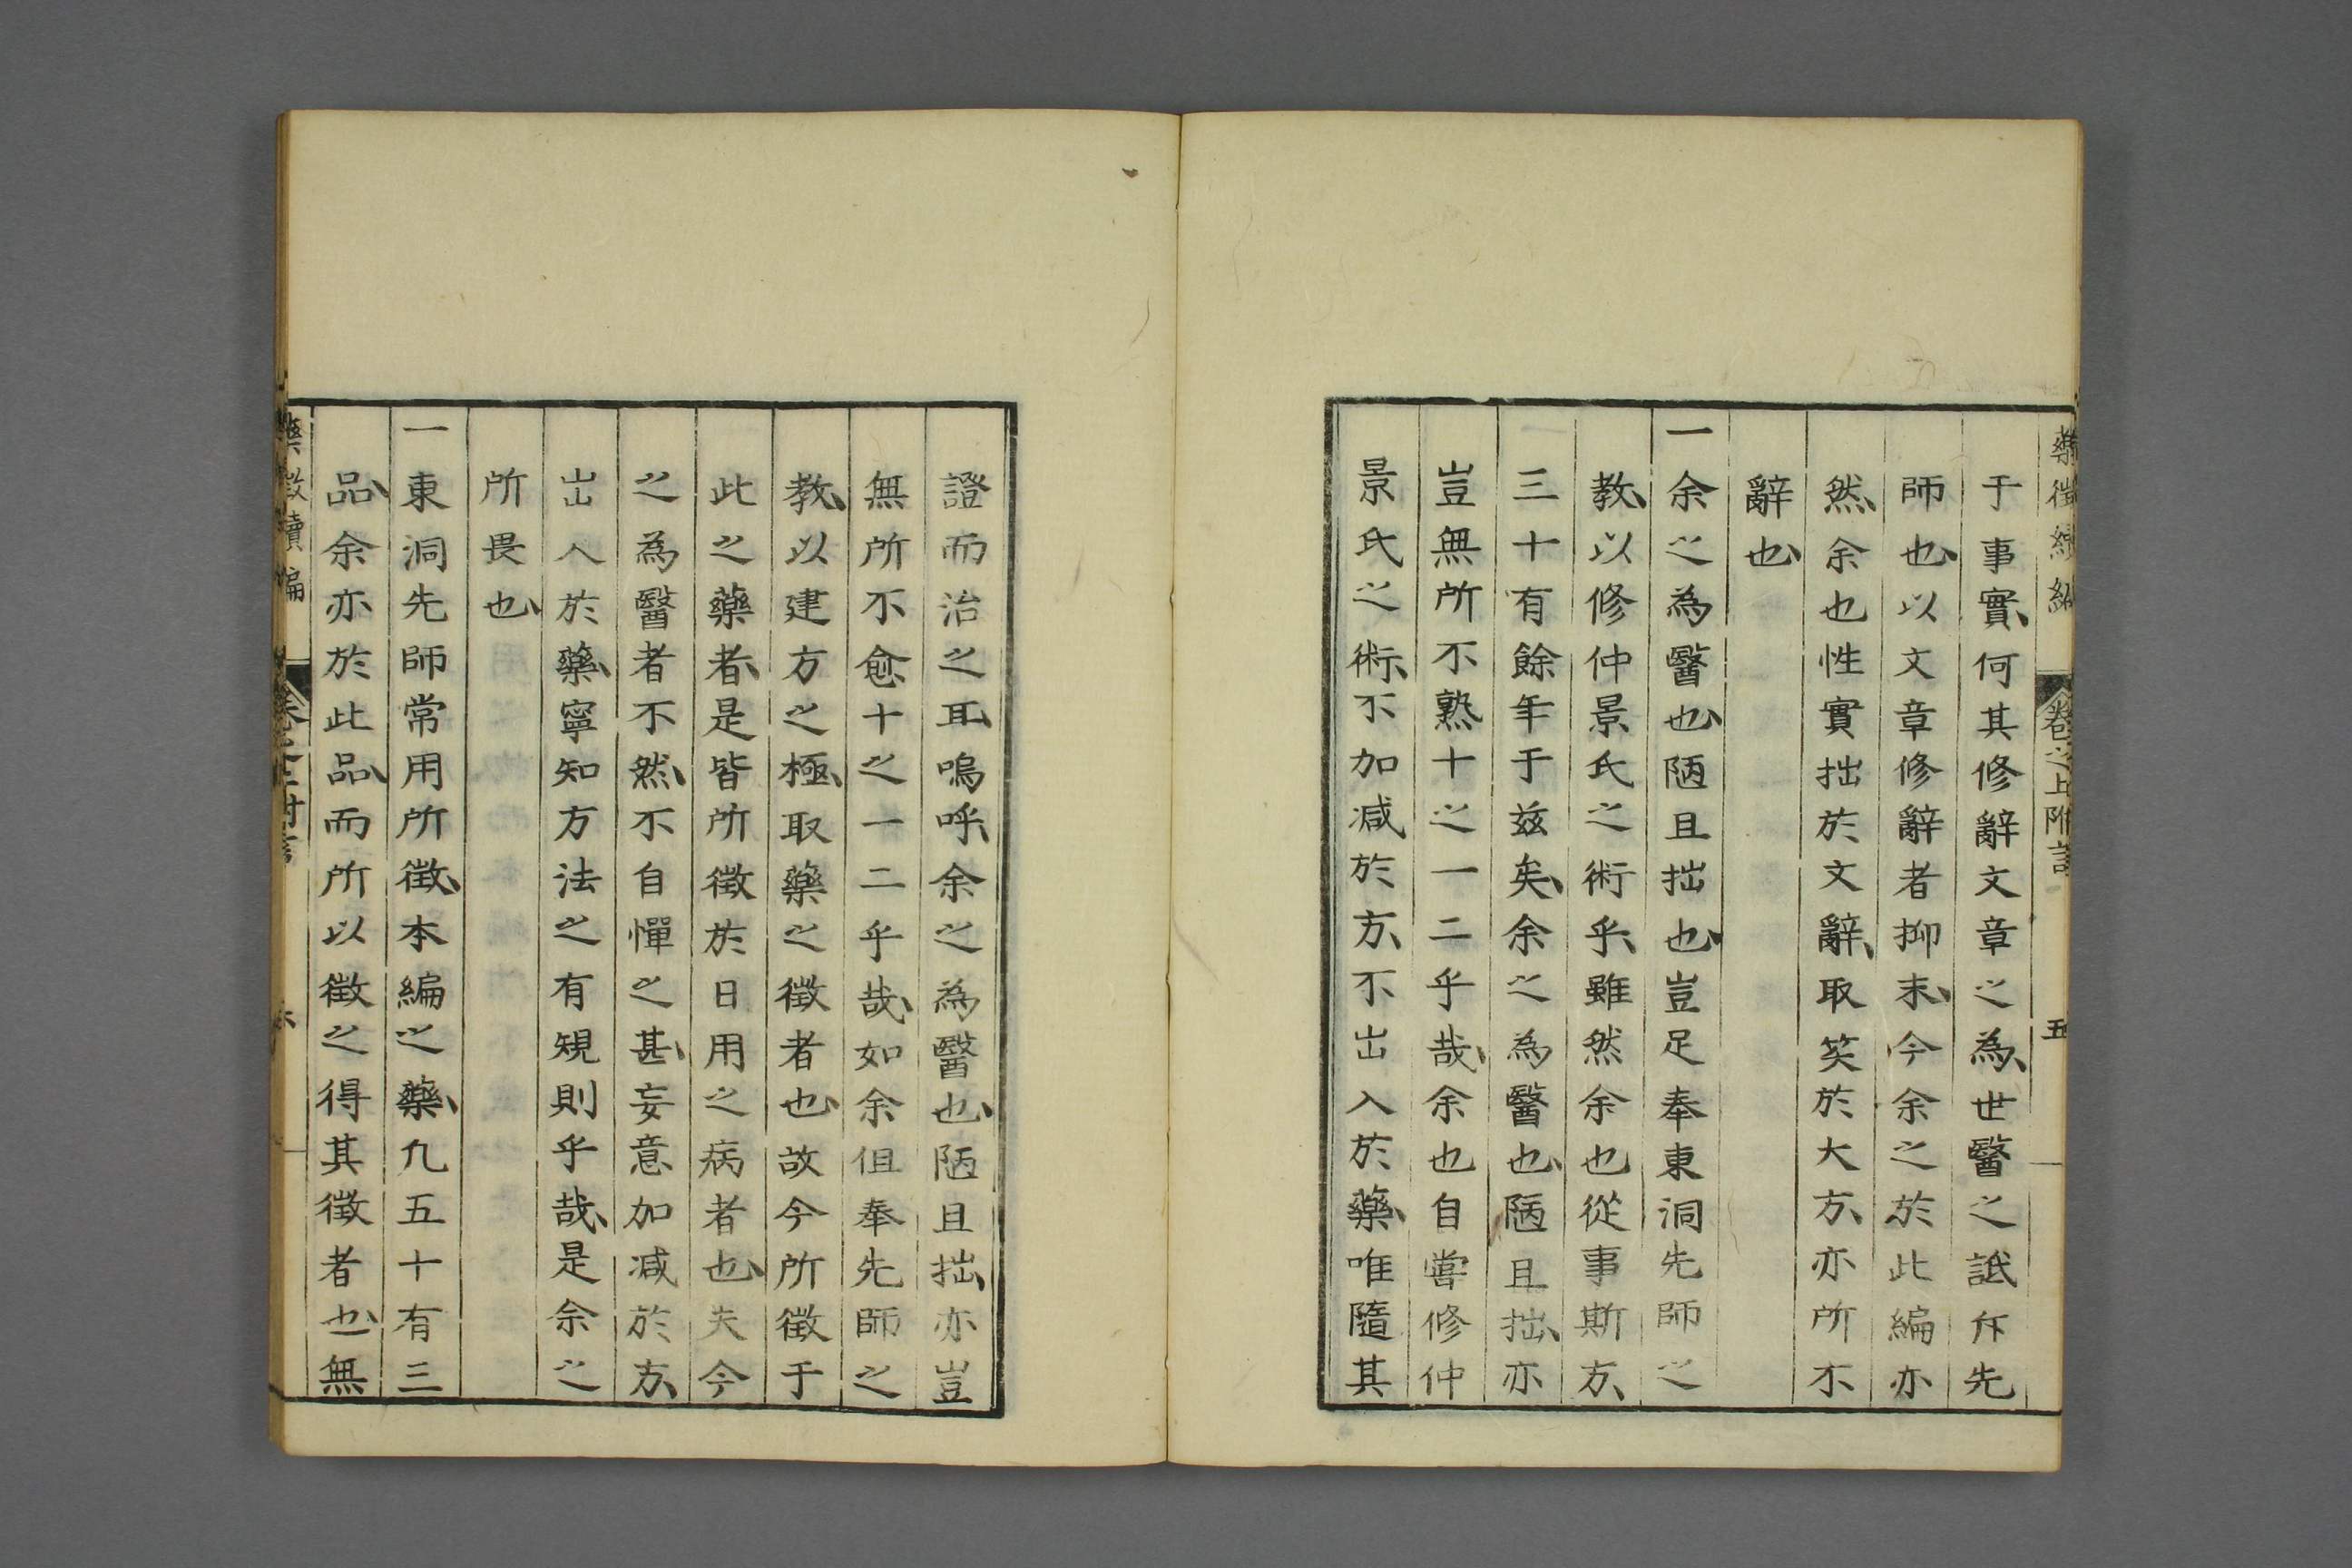 藥徵續編 卷之上附言 五
于事實、何其修辭文章之為、世醫之詆斥先
師也、以文章修辭者抑末、今余之於此編亦
然、余也性實拙於文辭、取笑於大方、亦所不
辭也、
一余之為醫也、陋且拙也、豈足奉東洞先師之
教、以修仲景氏之術乎、雖然余也從事斯方、
三十有餘年于兹矣、余之為醫也、陋且拙、亦
豈無所不熟十之一二乎哉、余也自嘗修仲
景氏之術、不加減於方、不出入於藥、唯隨其
證而治之耳、嗚呼、余之為醫也、陋且拙、亦豈
無所不愈十之一二乎哉、如余但奉先師之
教、以建方之極、取藥之徵者也、故今所徵于
此之藥者、是皆所徵於日用之病者也、夫今
之為醫者不然、不自憚之甚、妄意加減於方、
出入於藥、寧知方法之有規則乎哉、是余之
所畏也、
一東洞先師常用所徵、本編之藥、凡五十有三
品、余亦於此品、而所以徵之得其徵者也、無
藥徵續編 卷之上附言 六